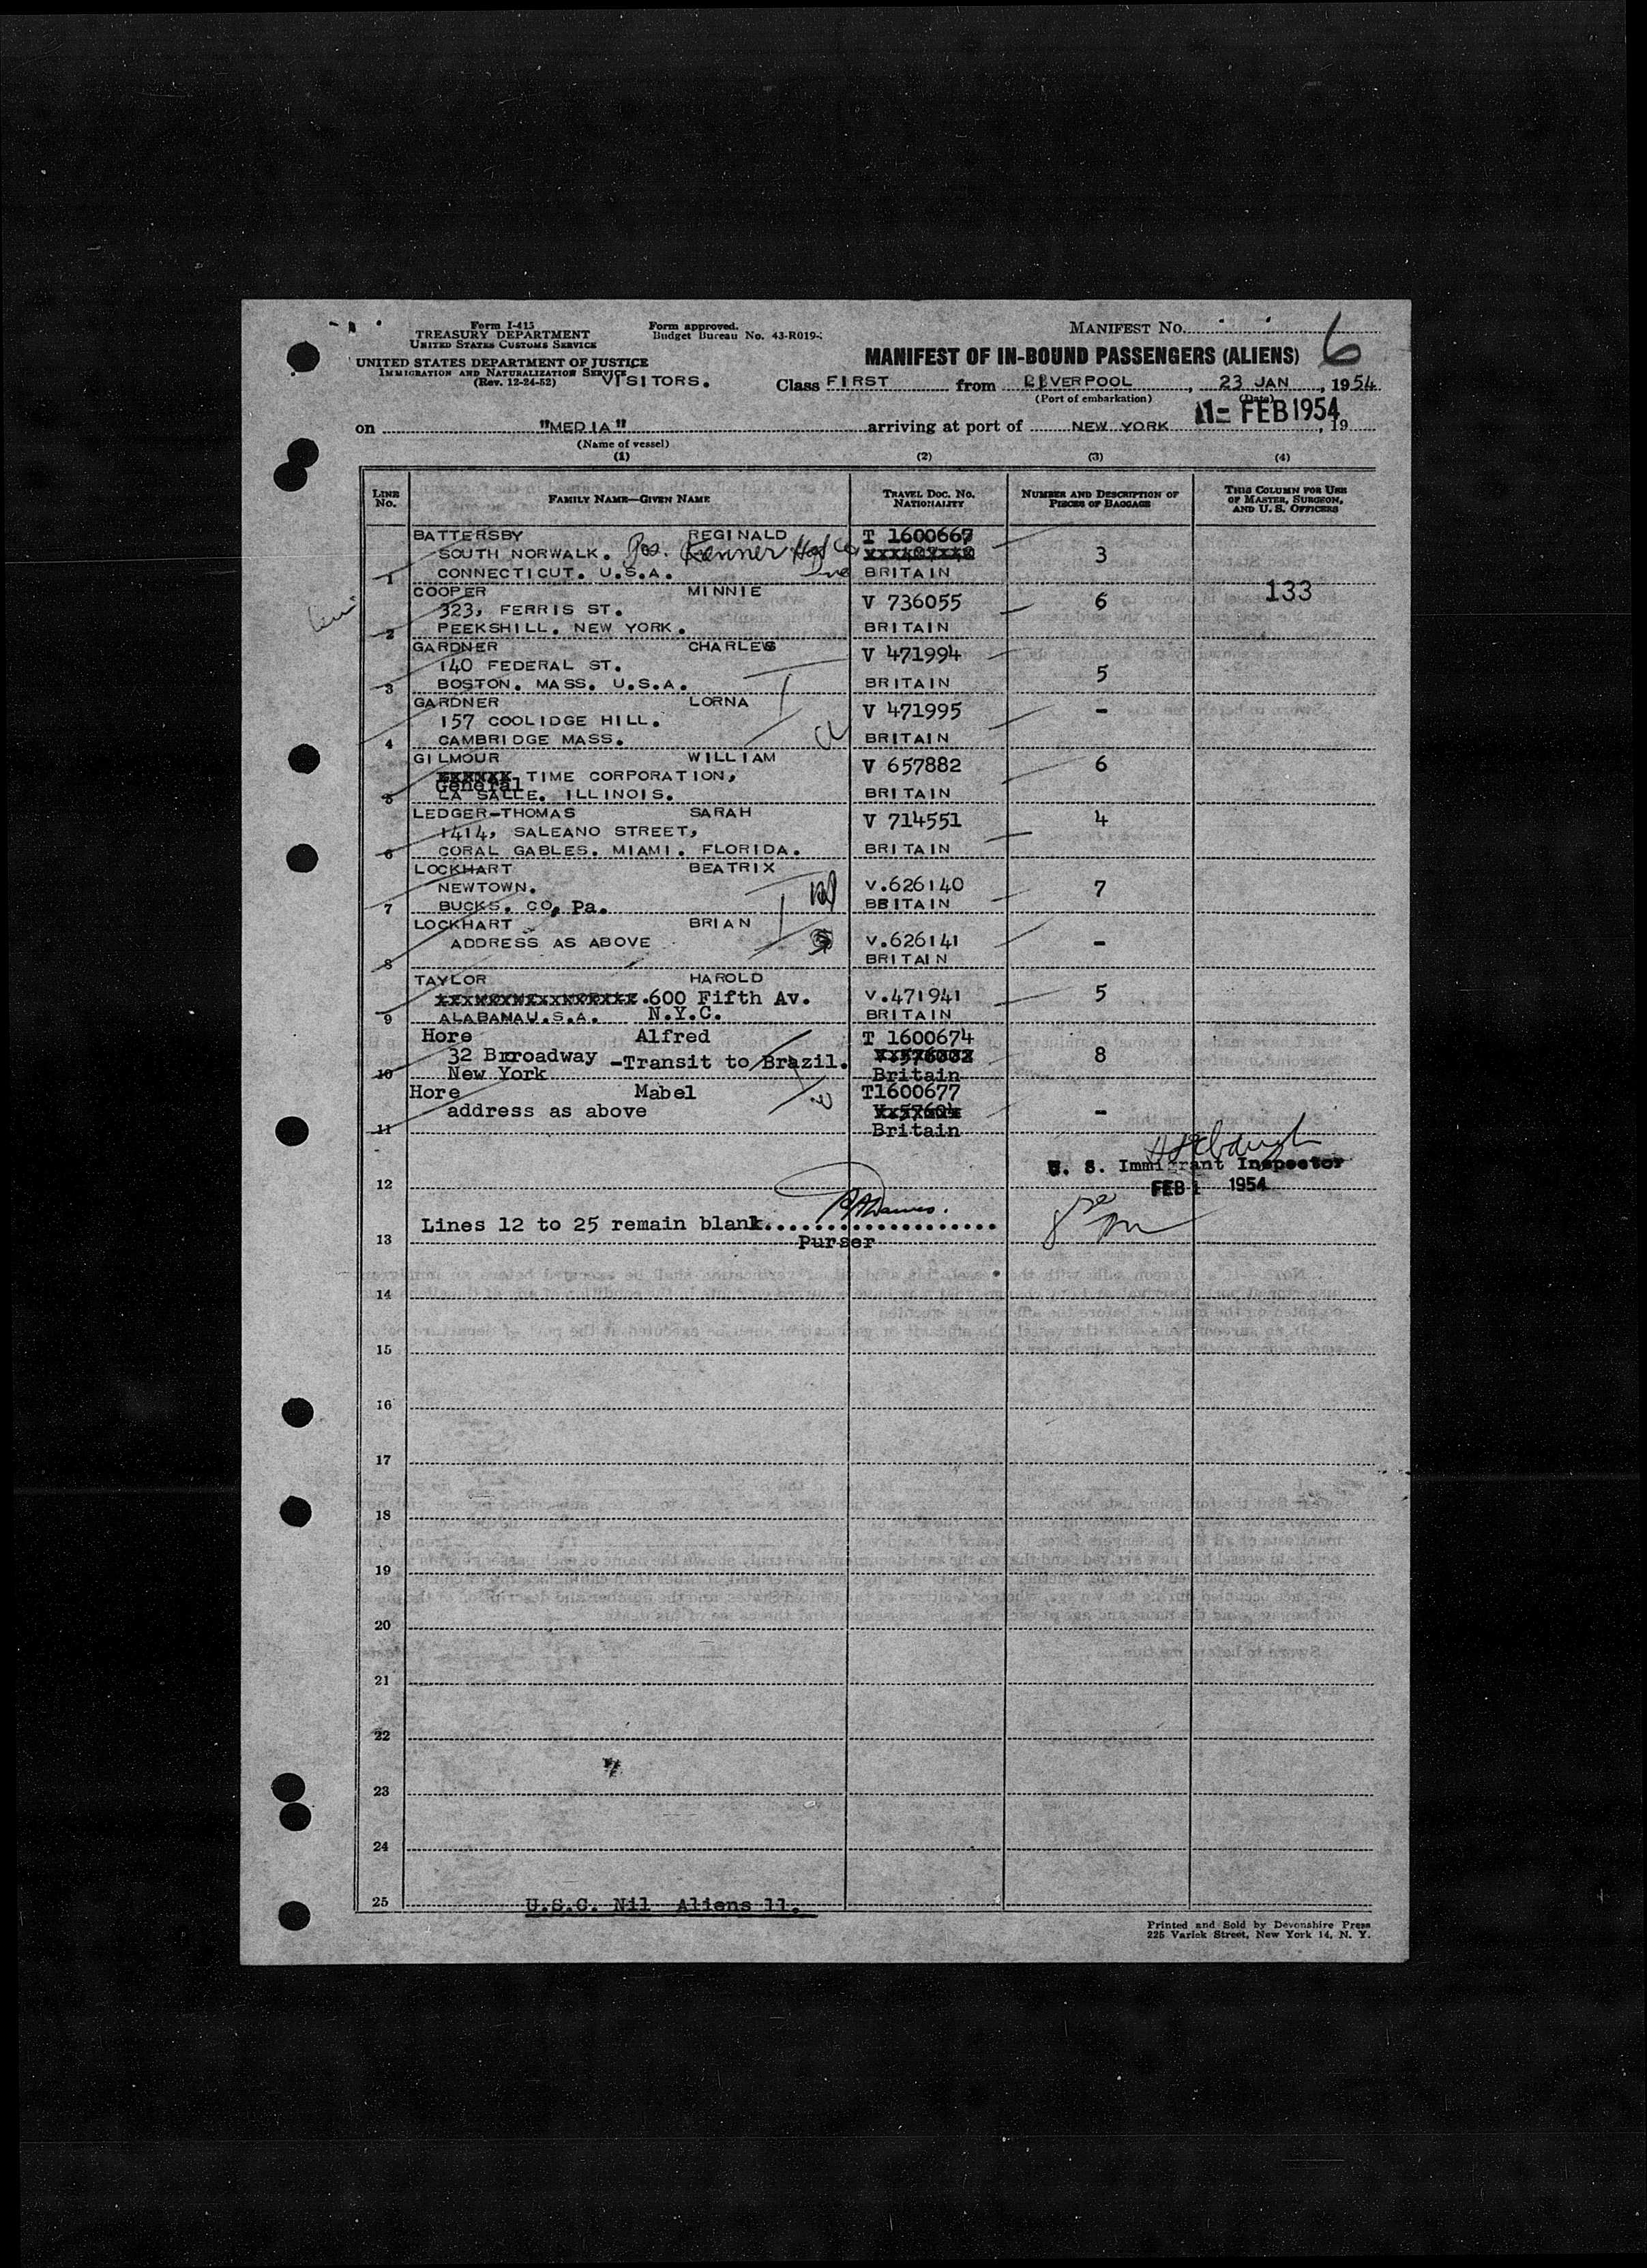 Form I-415
TREASURY DEPARTMENT
UNITED STATES CUSTOMS SERVICE
Form approved.
Budget Bureau No. 43-R019-
MANIFEST No.
6
UNITED STATES DEPARTMENT OF JUSTICE
IMMIGRATION AND NATURALIZATION SERVICE
(Rev. 12-24-52)
VISITORS.
MANIFEST OF IN-BOUND PASSENGERS (ALIENS)
Class FIRST from LIVERPOOL, 23 JAN, 1954
(Port of embarkation) (Date)
1- FEB 1954
on "MEDIA" arriving at port of NEW YORK, 19
(Name of vessel)
(1) (2) (3) (4)
LINE No. FAMILY NAME—GIVEN NAME TRAVEL DOC. NO. NATIONALITY NUMBER AND DESCRIPTION OF PIECES OF BAGGAGE THIS COLUMN FOR USE OF MASTER, SURGEON, AND U. S. OFFICERS
BATTERSBY REGINALD T 1600667
SOUTH NORWALK. 3
1 CONNECTICUT. U.S.A. BRITAIN
COOPER MINNIE 133
323, FERRIS ST. V 736055 6
2 PEEKSHILL. NEW YORK. BRITAIN
GARDNER CHARLES V 471994
140 FEDERAL ST. 5
3 BOSTON. MASS. U.S.A. BRITAIN
GARDNER LORNA V 471995 -
157 COOLIDGE HILL.
4 CAMBRIDGE MASS. BRITAIN
GILMOUR WILLIAM V 657882 6
TIME CORPORATION,
General
5 LA SALLE. ILLINOIS. BRITAIN
LEDGER-THOMAS SARAH V 714551 4
1414, SALEANO STREET,
6 CORAL GABLES. MIAMI. FLORIDA. BRITAIN
LOCKHART BEATRIX
NEWTOWN. V.626140 7
7 BUCKS. CO, Pa. BRITAIN
LOCKHART BRIAN
ADDRESS AS ABOVE V.626141 -
8 BRITAIN
TAYLOR HAROLD
.600 Fifth Av. V.471941 5
9 ALABAMA U.S.A. N.Y.C. BRITAIN
Hore Alfred T 1600674
32 Brroadway -Transit to Brazil. 8
10 New York Britain
Hore Mabel T1600677
address as above -
11 Britain
U. S. Immigrant Inspector
12 FEB 1 1954
Lines 12 to 25 remain blank....................
13 Purser
14
15
16
17
18
19
20
21
22
23
24
25 U.S.C. Nil Aliens 11.
Printed and Sold by Devonshire Press
225 Varick Street, New York 14, N. Y.